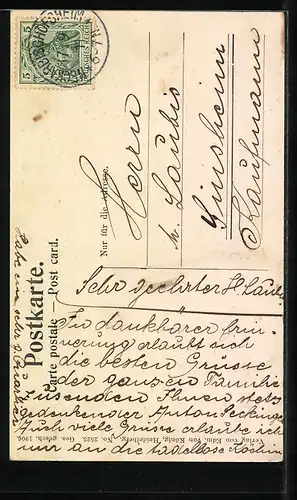 Postkarte.
Carte postale — Post card.
Nur für die Adresse.
Herrn
H. Laubis
Sinsheim
Kaufmann
Sehr geehrter H. Laubis
In dankbarer Erin-
nerung erlaubt sich
die besten Grüsse
der ganzen Familie
zusenden Ihnen stets
gedenkender Anton
Auch viele Grüsse erlaube ich
mir an die tadellose Köchin
Habe eine sehr
Verlag von Edm. von König, Heidelberg. No. 2523. Ges. gesch. 1906
5
5